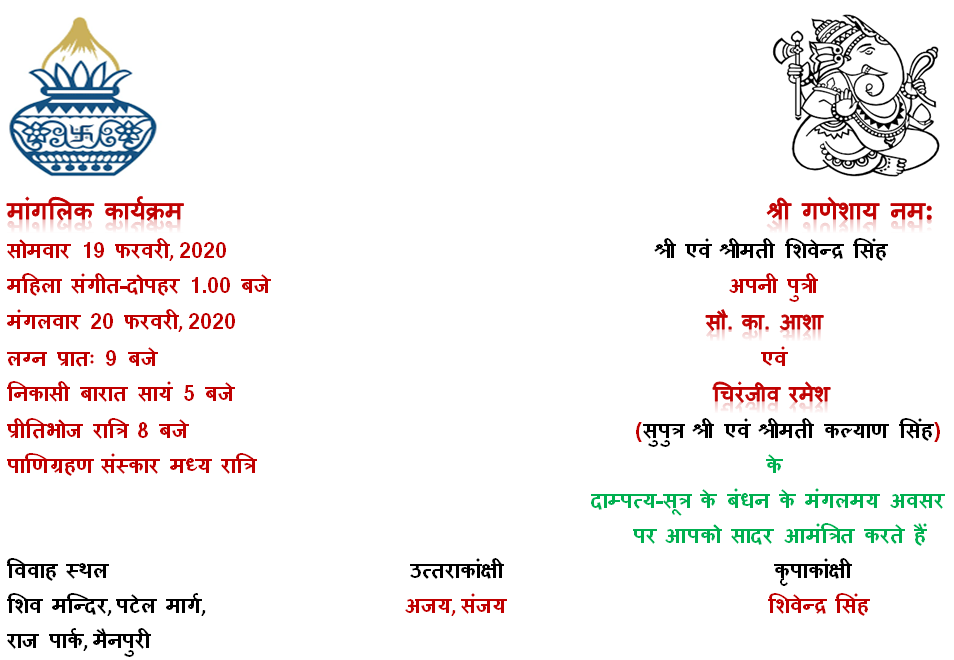 मांगलिक कार्यक्रम
सोमवार 19 फरवरी, 2020
महिला संगीत-दोपहर 1.00 बजे
मंगलवार 20 फरवरी, 2020
लग्न प्रातः 9 बजे
निकासी बारात सायं 5 बजे
प्रीतिभोज रात्रि 8 बजे
पाणिग्रहण संस्कार मध्य रात्रि
श्री गणेशाय नम:
श्री एवं श्रीमती शिवेन्द्र सिंह
अपनी पुत्री
सौ. का. आशा
एवं
चिरंजीव रमेश
(सुपुत्र श्री एवं श्रीमती कल्याण सिंह)
के
दाम्पत्य-सूत्र के बंधन के मंगलमय अवसर
पर आपको सादर आमंत्रित करते हैं
विवाह स्थल
शिव मन्दिर, पटेल मार्ग,
राज पार्क, मैनपुरी
उत्तराकांक्षी
अजय, संजय
कृपाकांक्षी
शिवेन्द्र सिंह